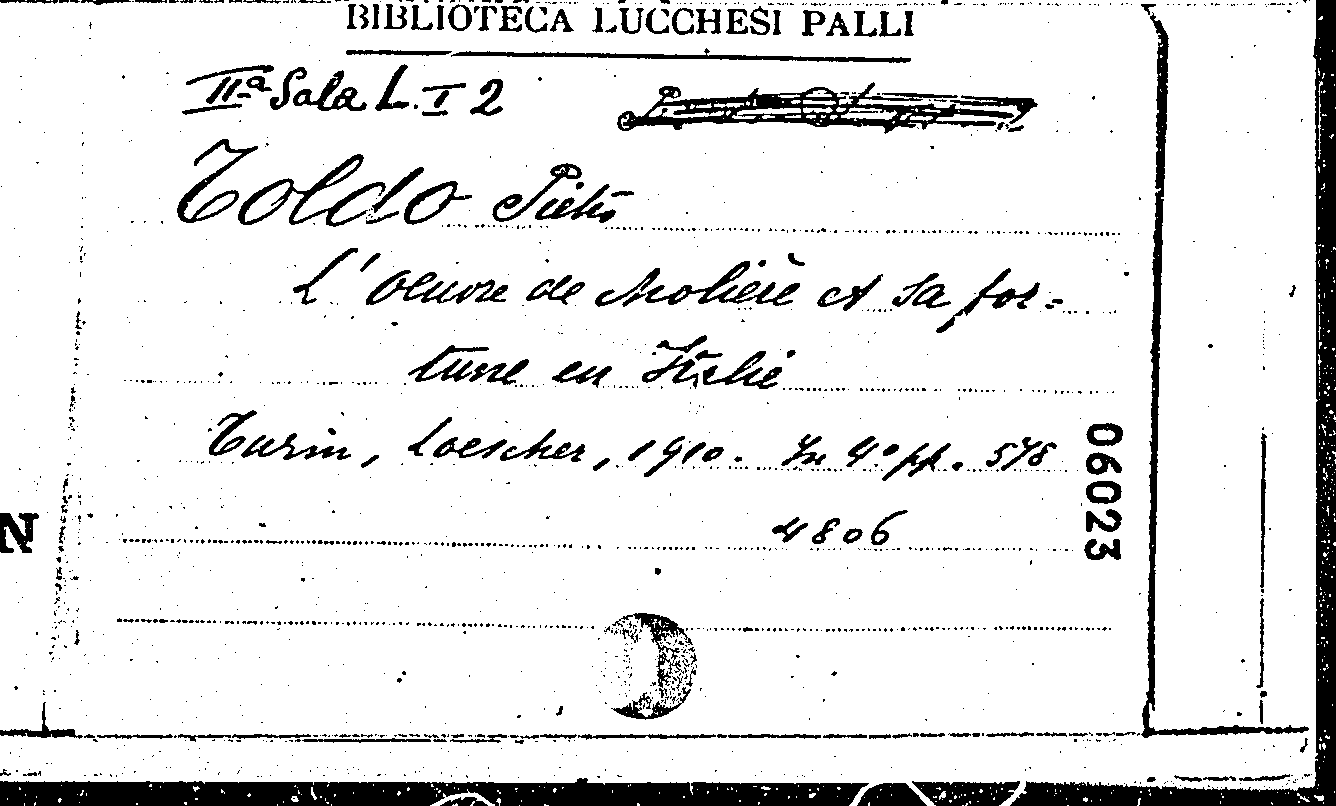 BIBLIOTECA LUCCHESI PALLI
IIª Sala L. I 2
Toldo Pietro
L'Oeuvre de Molière et sa for=
tune en Italie
Turin, Loescher, 1910. In 4º pp. 578
4806
06023
N